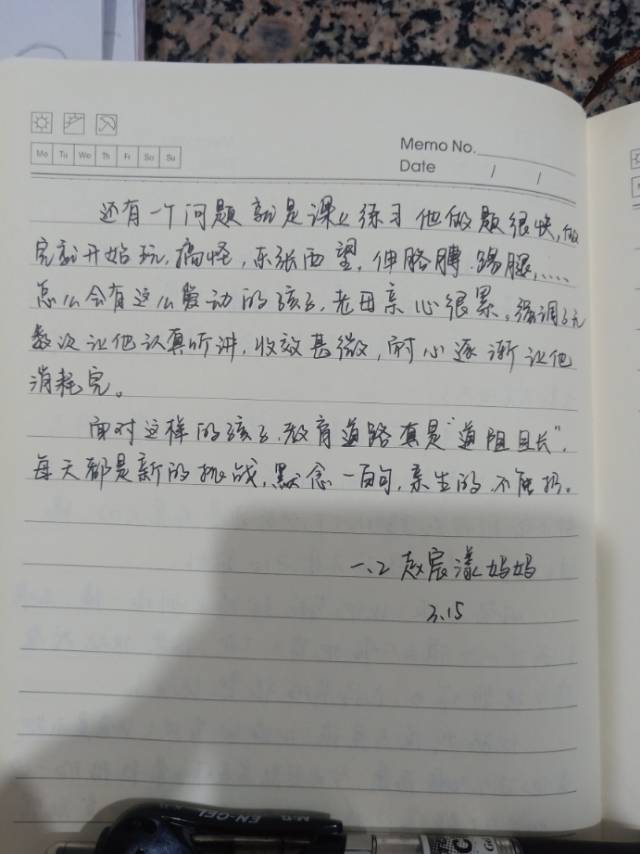 Memo No.
Date / /
Mo Tu We Th Fr Sa Su
还有一个问题就是课上练习他做题很快,做
完就开始玩,搞怪,东张西望,伸胳膊踢腿,……
怎么会有这么爱动的孩子,老母亲心很累。强调了无
数次让他认真听讲,收效甚微,耐心逐渐让他
消耗完。
面对这样的孩子,教育道路真是“道阻且长”,
每天都是新的挑战,默念一百句,亲生的不能扔。
一.2 赵宸漾妈妈
3.15